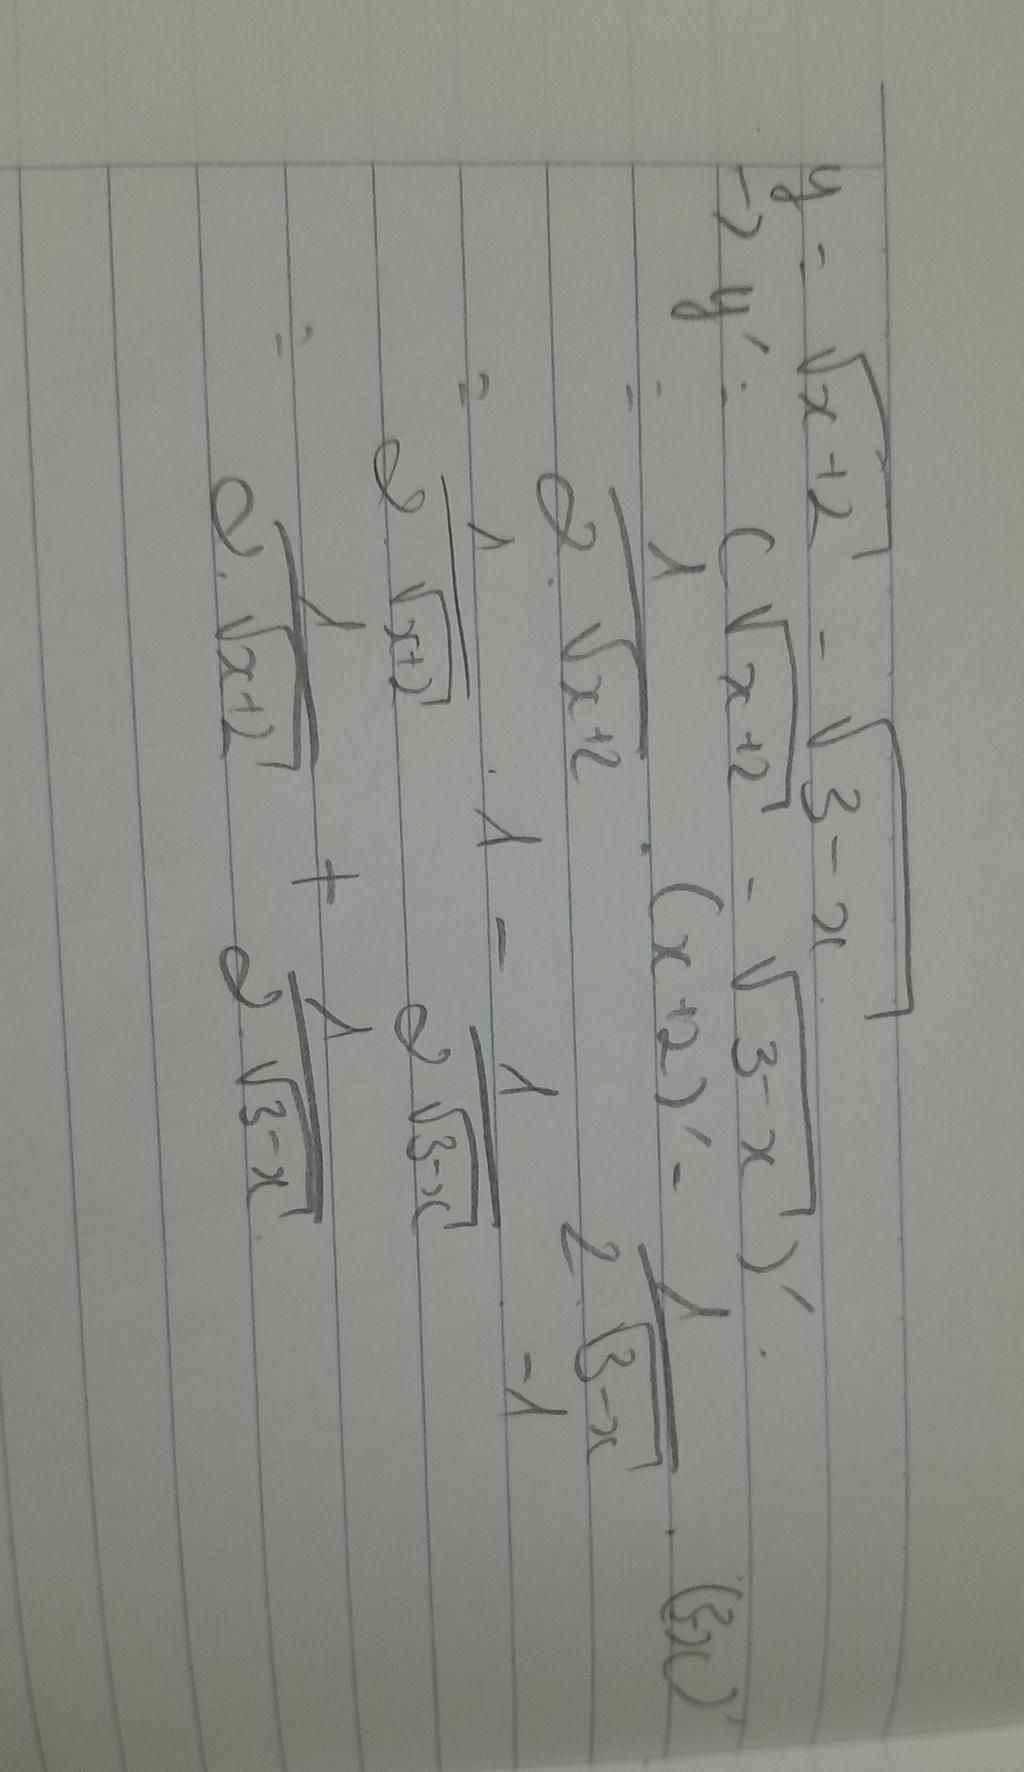 y = √(x+2) - √(3-x)
→ y' = (√(x+2) - √(3-x))'.
= 1/(2.√(x+2)) . (x+2)' - 1/(2√(3-x)) . (3-x)'
= 1/(2√(x+2)) . 1 - 1/(2√(3-x)) -1
= 1/(2.√(x+2)) + 1/(2√(3-x))